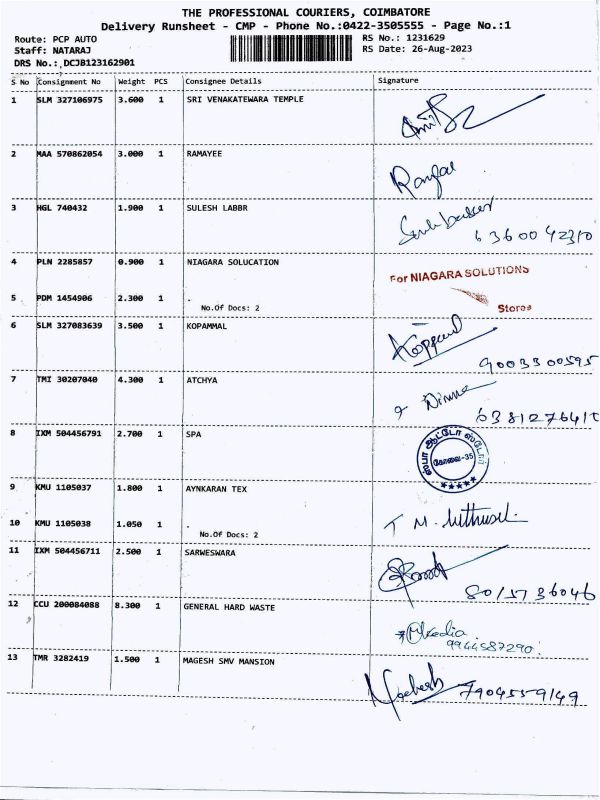 THE PROFESSIONAL COURIERS, COIMBATORE
Delivery Runsheet - CMP - Phone No.:0422-3505555 - Page No.:1
Route: PCP AUTO RS No.: 1231629
Staff: NATARAJ RS Date: 26-Aug-2023
DRS No.: DCJB123162901
S No Consignment No Weight PCS Consignee Details Signature
1 SLM 327106975 3.600 1 SRI VENAKATEWARA TEMPLE
2 MAA 570862054 3.000 1 RAMAYEE
3 HGL 740432 1.900 1 SULESH LABBR
6360042310
4 PLN 2285857 0.900 1 NIAGARA SOLUCATION
For NIAGARA SOLUTIONS
5 PDM 1454906 2.300 1
No.Of Docs: 2
Stores
6 SLM 327083639 3.500 1 KOPAMMAL
9003300595
7 TMI 30207040 4.300 1 ATCHYA
638127641
8 IXM 504456791 2.700 1 SPA
ஸ்பா ஆட்டோ ஸ்டோர்
கோவை-35
9 KMU 1105037 1.800 1 AYNKARAN TEX
10 KMU 1105038 1.050 1
No.Of Docs: 2
11 IXM 504456711 2.500 1 SARWESWARA
12 CCU 200084088 8.300 1 GENERAL HARD WASTE
9944587290
13 TMR 3282419 1.500 1 MAGESH SMV MANSION
7904559149